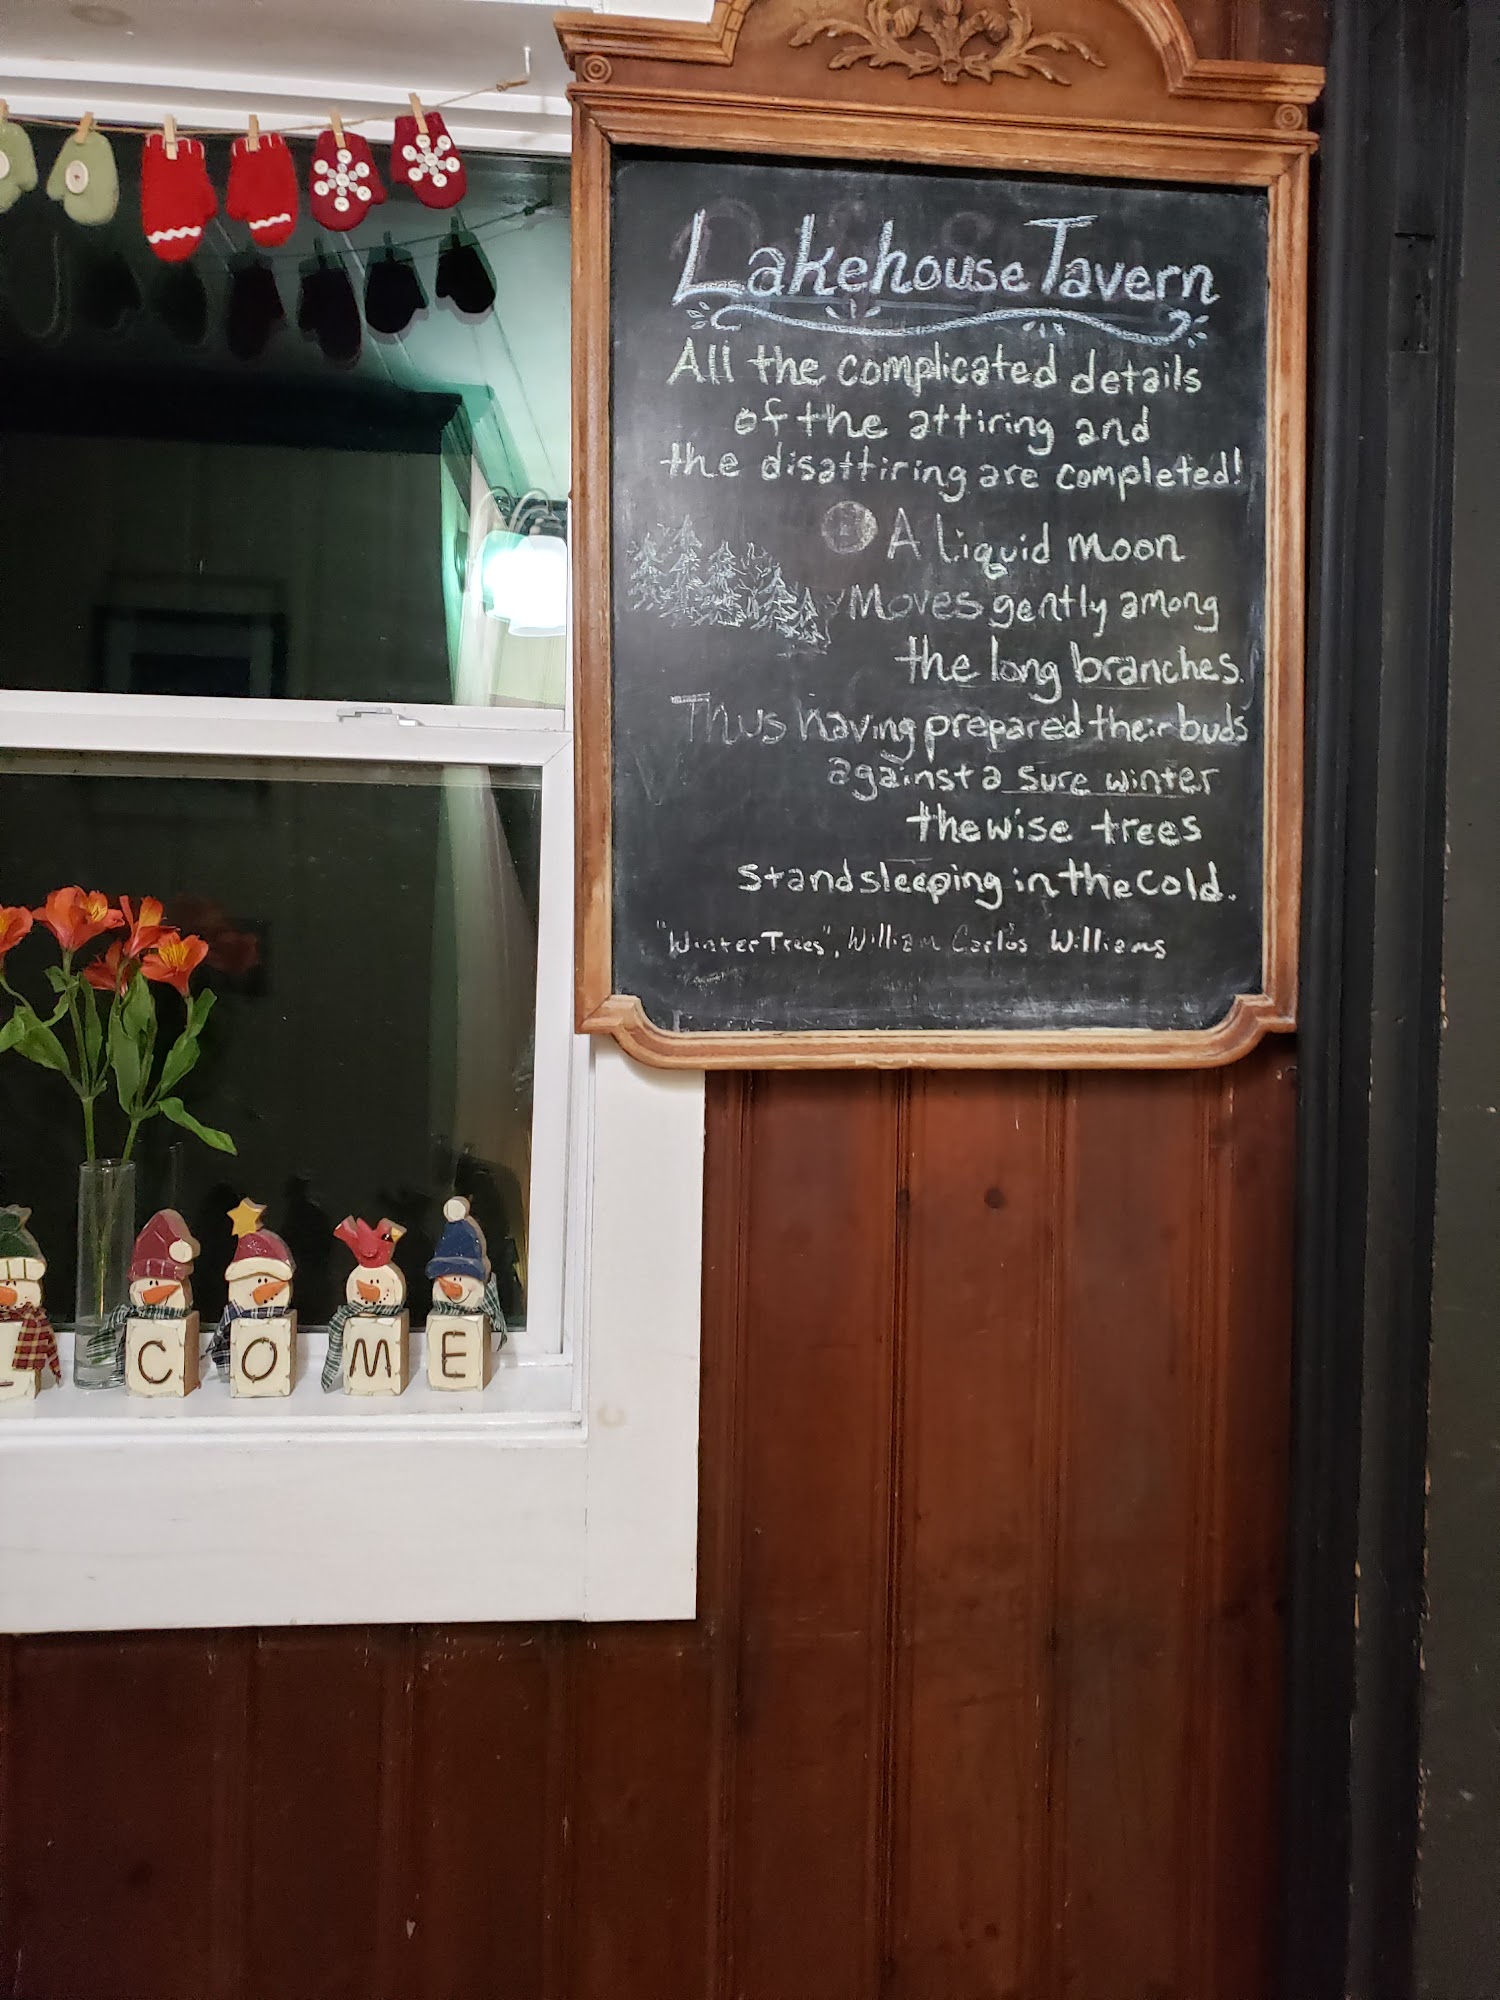 Lakehouse Tavern
All the complicated details
of the attiring and
the disattiring are completed!
A liquid moon
Moves gently among
the long branches.
Thus having prepared their buds
against a sure winter
the wise trees
stand sleeping in the cold.
"Winter Trees", William Carlos Williams
C O M E